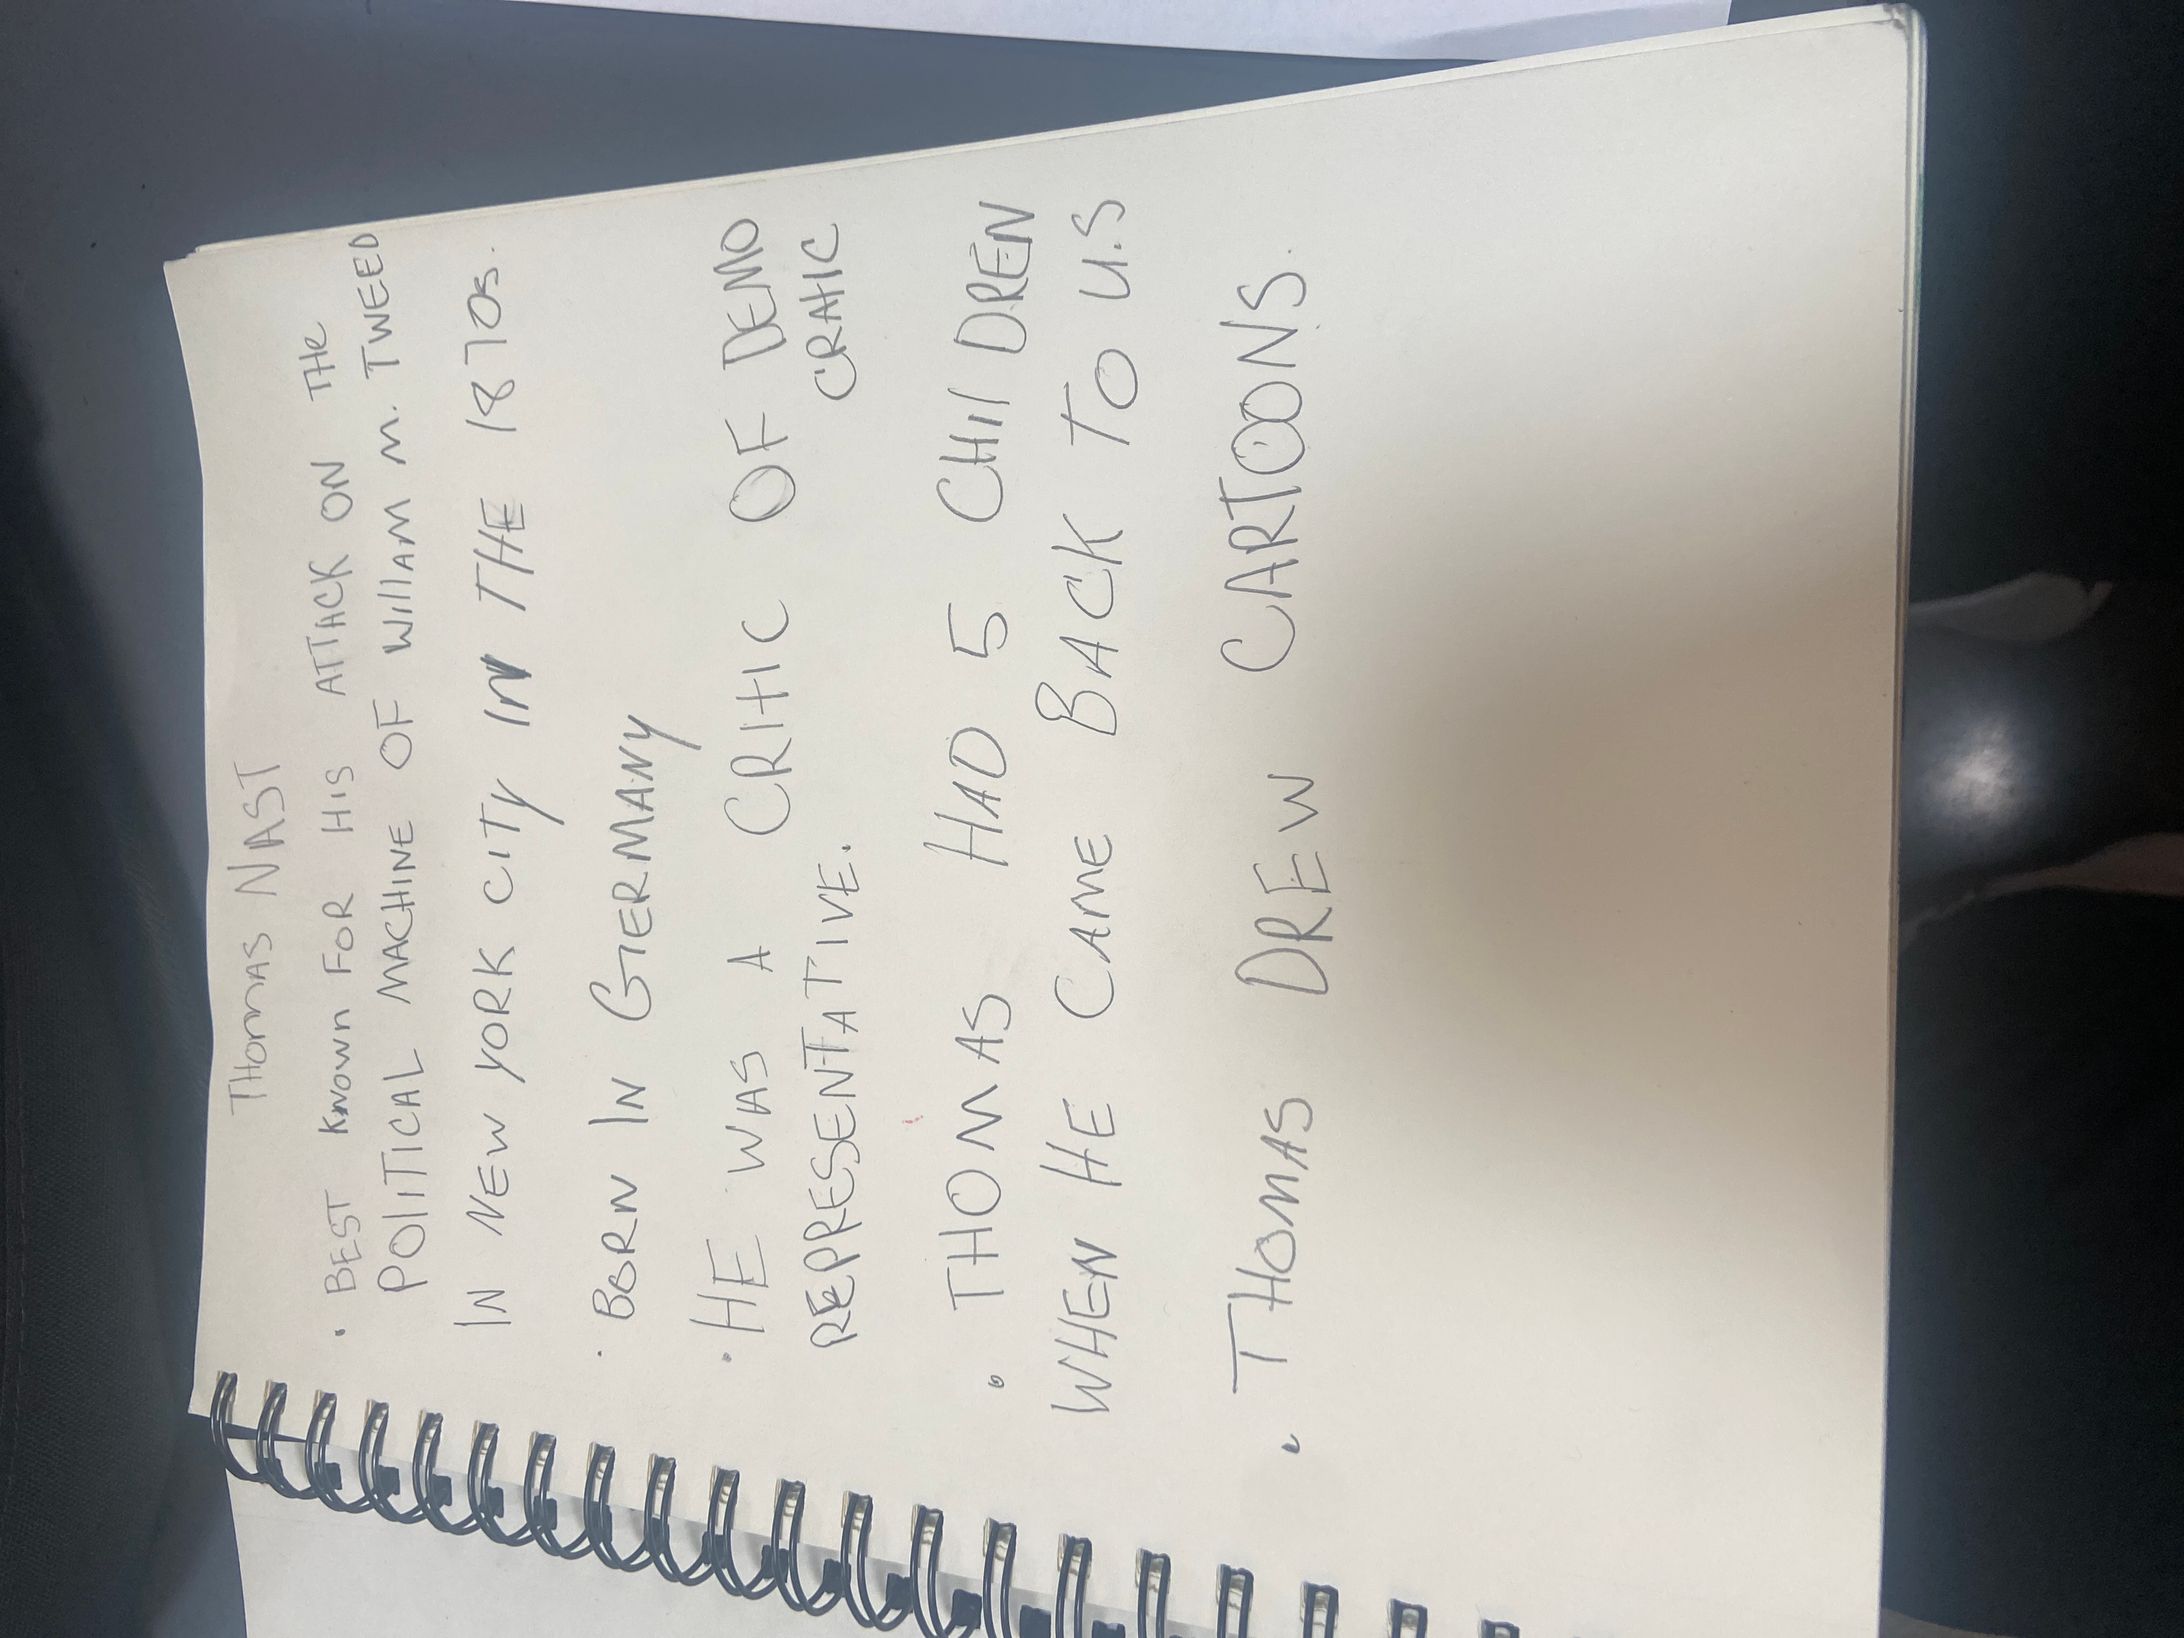 THOMAS NAST
• BEST KNOWN FOR HIS ATTACK ON THE
POLITICAL MACHINE OF WILLIAM M. TWEED
IN NEW YORK CITY IN THE 1870s.
• BORN IN GERMANY
• HE WAS A CRITIC OF DEMO
CRATIC
REPPRESENTATIVE.
• THOMAS HAD 5 CHILDREN
WHEN HE CAME BACK TO U.S
• THOMAS DREW CARTOONS.